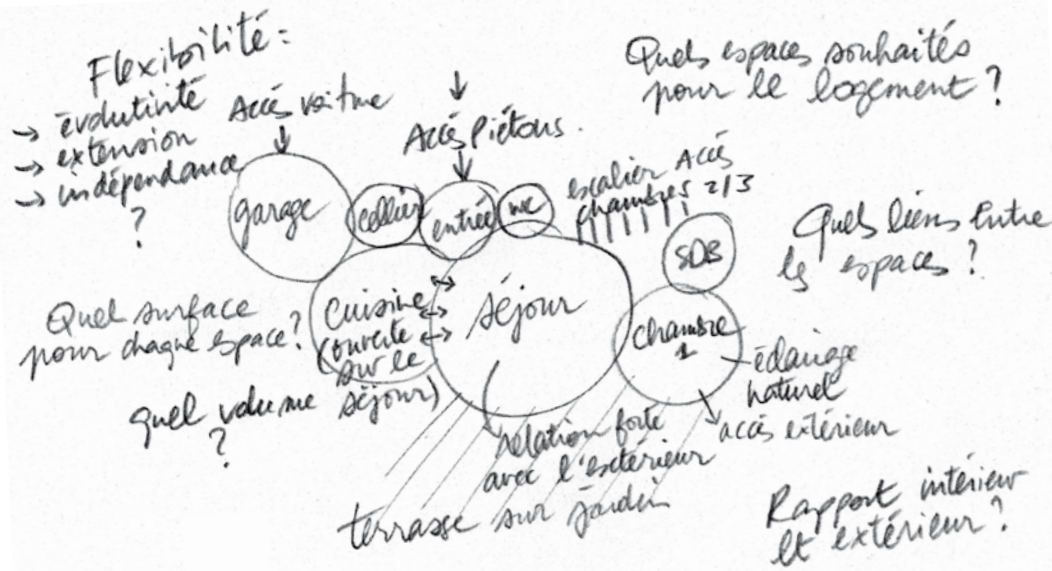 Flexibilité =
→ évolutivité
→ extension
→ indépendance
?
Accès voiture
Accès Piétons.
Quels espaces souhaités
pour le logement ?
escalier Accès
chambres 2/3
garage
cellier
entrée
wc
SDB
Quels liens entre
les espaces ?
Quel surface
pour chaque espace ?
Cuisine
(ouverte
sur le
séjour)
séjour
chambre
1
éclairage
naturel
accès extérieur
quel volume
?
relation forte
avec l'extérieur
terrasse sur jardin
Rapport intérieur
et extérieur ?